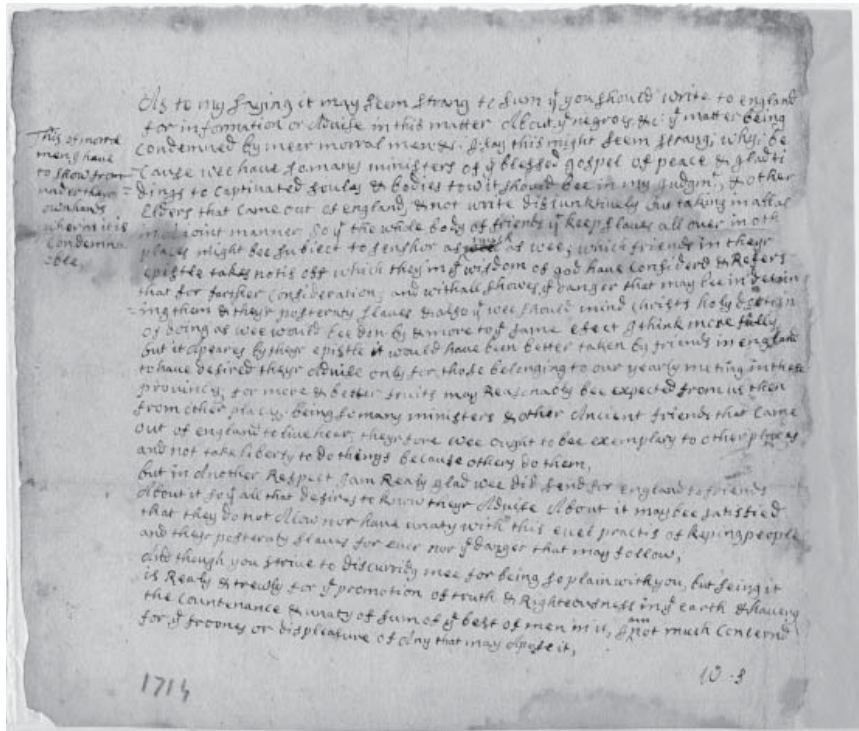 As to my saying it may seem strang to sum yt you should write to england
for information or Advise in this matter About ye negroys &c: ye matter being
Condemned by meer morral men &c. I say this might seem strang, why, be
Cause wee have so many ministers of ye blessed gospel of peace & glad ti
dings to captivated soules & bodies to wit should bee in my Judgmt, & other
Elders that Came out of england, & not write disjunctively but taking in all as
in a Joint manner so yt the whole body of friends yt keep slaves all over in oth
places might bee subject to senshor as much as wee; which friends in theyr
epistle takes notis off which they in ye wisdom of god have Considerd & Refers
that for farther Consideration, and withall showes ye danger that may bee in detain
ing them & theyr posteraty slaves & also yt wee should mind Christs holy doctrin
of doing as wee would bee don by & more to ye same efect I think more fully
but it Apeares by theyr epistle it would have been better taken by friends in england
to have desired theyr Advise only for those belonging to our yearly meting in these
provinces, for more & better fruits may Reasonably bee expected from us then
from other places. being so many ministers & other Ancient friends that Came
out of england to live hear, theyrfore wee ought to bee exemplary to other places
and not take liberty to do things because others do them,
but in Another Respect I am Realy glad wee did send for england to friends
About it so yt all that desires to know theyr Advise About it may bee satisfied
that they do not Allow nor have unaty with this evel practis of keping people
and theyr posteraty slaves for ever nor ye danger that may follow,
And though you strive to discurridg mee for being so plain with you, but seing it
is Realy & trewly for ye promotion of truth & Righteousness in ye earth & having
the Countenance & unaty of sum of ye best of men in it, I am not much Concernd
for ye froones or displeasure of Any that may Apose it,
W-S
1714
This of morral
men I have
to show from
under theyr
own hands
wherin it is
Condemna
ble,